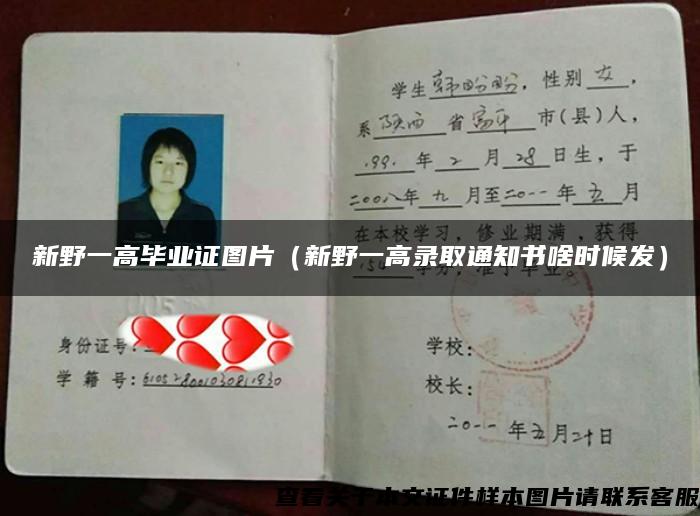 学生韩盼盼,性别女,
系陕西省富平市(县)人,
1991年2月28日生,于
二00八年九月至二0一一年五月
在本校学习,修业期满,获得
新野一高毕业证图片(新野一高录取通知书啥时候发)
身份证号:
学籍号:
学校:
校长:
二0一一年五月二十日
查看关于本文证件样本图片请联系客服